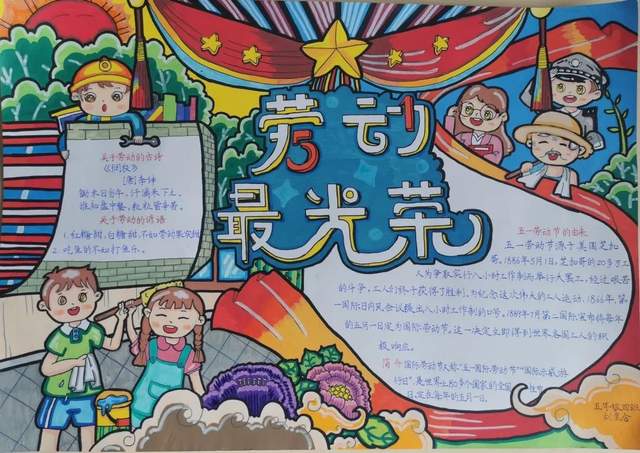 劳动
51
最光荣
关于劳动的古诗
《悯农》
[唐]李绅
锄禾日当午,汗滴禾下土。
谁知盘中餐,粒粒皆辛苦。
关于劳动的谚语
1.红糖甜,白糖甜,不如劳动果实甜
2.吃鱼的不如打鱼乐。
五一劳动节的由来
五一劳动节源于美国芝加
哥,1886年5月1日,芝加哥的20多万工
人为争取实行八小时工作制而举行大罢工,经过艰苦
的斗争,工人们终于获得了胜利,为纪念这次伟大的工人运动,1866年,第
一国际日内瓦会议提出八小时工作制的口号,1889年7月第二国际宣布将每年
的五月一日定为国际劳动节。这一决定立即得到世界各国工人的积
极响应。
简介 国际劳动节又称“五一国际劳动节”“国际示威游
行日”,是世界上80多个国家的全国
日,定在每年的五月一日。